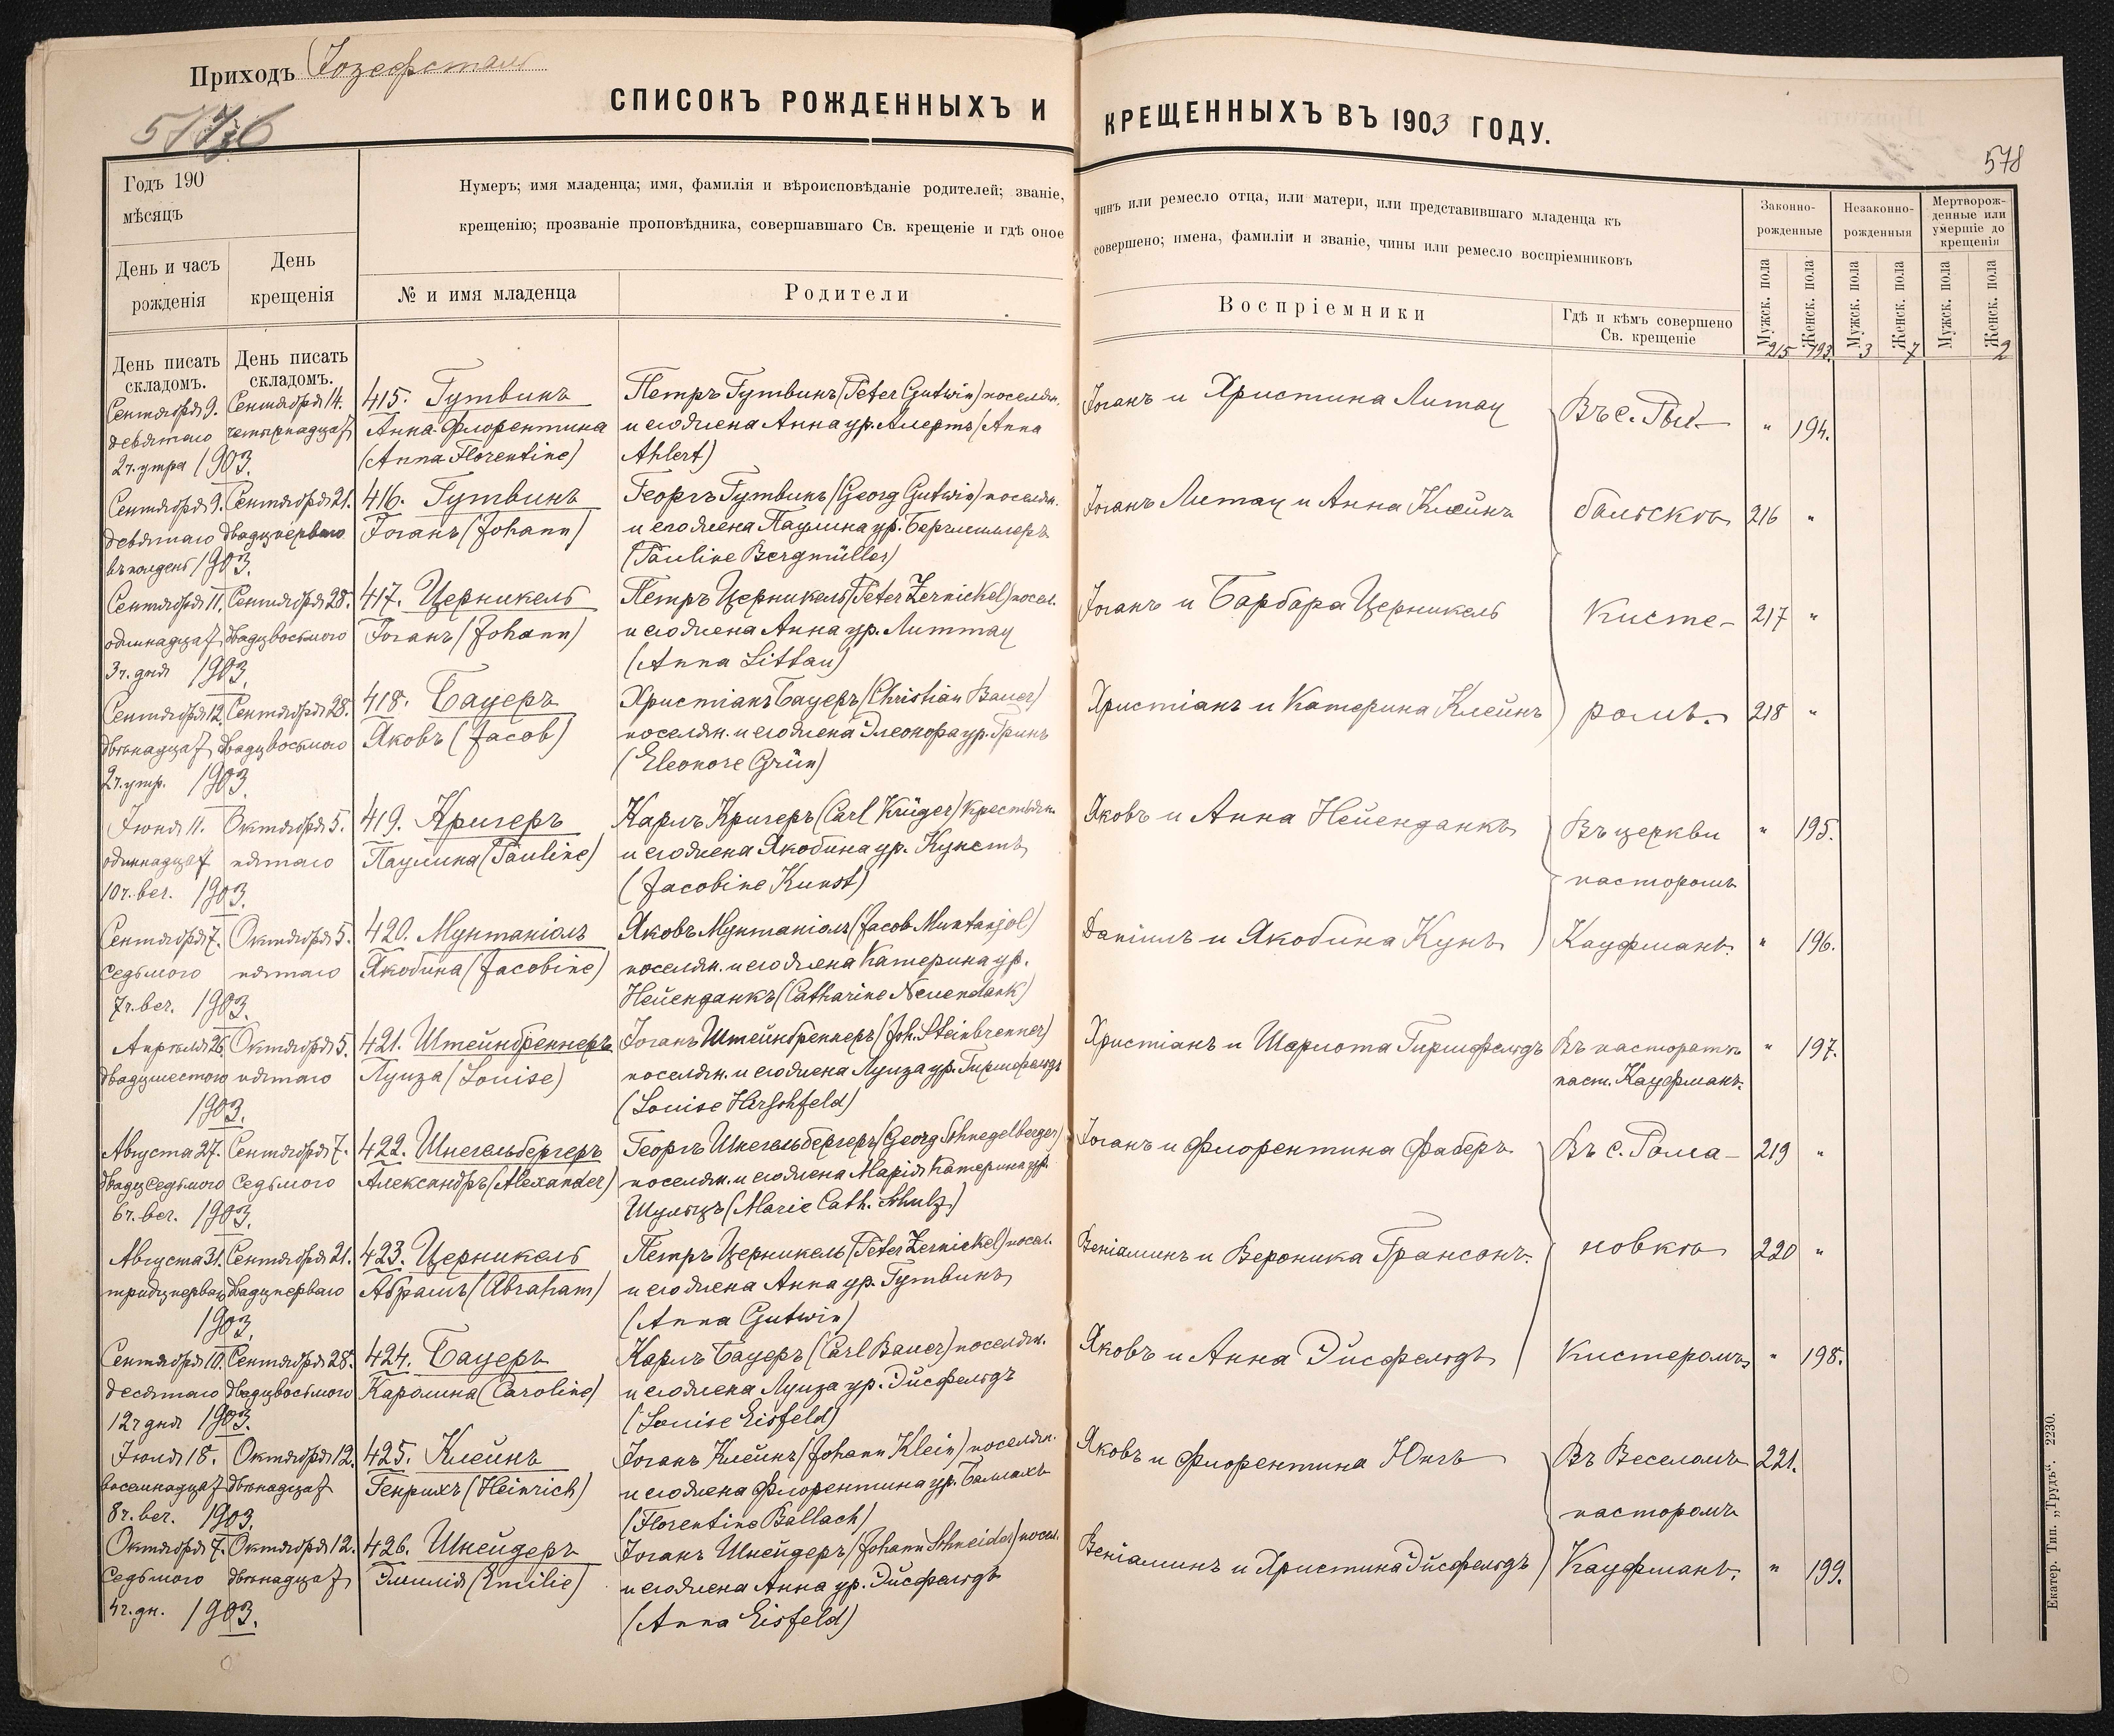 Приходъ Іозефсталь
СПИСОКЪ РОЖДЕННЫХЪ И КРЕЩЕННЫХЪ ВЪ 1903 ГОДУ.
578
Годъ 190
мѣсяцъ
Нумеръ; имя младенца; имя, фамилія и вѣроисповѣданіе родителей; званіе, чинъ или ремесло отца, или матери, или представившаго младенца къ
крещенію; прозваніе проповѣдника, совершавшаго Св. крещеніе и гдѣ оное совершено; имена, фамиліи и званіе, чины или ремесло воспріемниковъ
День и часъ
рожденія
День
крещенія
№ и имя младенца
Родители
Воспріемники
Гдѣ и кѣмъ совершено
Св. крещеніе
Законно-
рожденные
Незаконно-
рожденныя
Мертворож-
денные или
умершіе до
крещенія
Мужск. пола
Женск. пола
Мужск. пола
Женск. пола
Мужск. пола
Женск. пола
215 193 3 7 2
День писать
складомъ.
День писать
складомъ.
Сентября 9. Сентября 14. 415. Гутвинъ Петръ Гутвинъ (Peter Gutwin) поселян. Іоганъ и Христина Литау Въ с. Рыб- " 194.
девятаго четырнадцат Анна-Флорентина и его жена Анна ур. Алертъ (Anna
2 ч. утра 1903. (Anna Florentine) Ahlert)
Сентября 9. Сентября 21. 416. Гутвинъ Георгъ Гутвинъ (Georg Gutwin) поселян. Іоганъ Литау и Анна Клейнъ бальскгь 216 "
девятаго двадцперваго Іоганъ (Johann) и его жена Паулина ур. Бергмиллеръ
въ полдень 1903. (Pauline Bergmüller)
Сентября 11. Сентября 28. 417. Церникель Петръ Церникель (Peter Zernickel) посел. Іоганъ и Барбара Церникель Кисте- 217 "
одиннадцат двадцвосьмого Іоганъ (Johann) и его жена Анна ур. Литтау
3 ч. дня 1903. (Anna Littau)
Сентября 12. Сентября 28. 418. Бауеръ Христіанъ Бауеръ (Christian Bauer) Христіанъ и Катерина Клейнъ ромъ. 218 "
двѣнадцат двадцвосьмого Яковъ (Jacob) поселян. и его жена Элеонора ур. Гринъ
2 ч. утр. 1903. (Eleonore Grün)
Іюня 11. Октября 5. 419. Кригеръ Карлъ Кригеръ (Carl Krüger) крестьян. Яковъ и Анна Нейенданкъ Въ церкви " 195.
одиннадцат пятаго Паулина (Pauline) и его жена Якобина ур. Кунстъ
10 ч. веч. 1903. (Jacobine Kunst) пасторомъ
Сентября 7. Октября 5. 420. Мунтаніолъ Яковъ Мунтаніолъ (Jacob Muntanjol) Даніилъ и Якобина Кунъ Кауфманъ. " 196.
седьмого пятаго Якобина (Jacobine) поселян. и его жена Катерина ур.
7 ч. веч. 1903. Нейенданкъ (Catharine Neuendank)
Апрѣля 26. Октября 5. 421. Штейнбреннеръ Іоганъ Штейнбреннеръ (Joh. Steinbrenner) Христіанъ и Шарлота Гиршфельдъ Въ пасторатѣ " 197.
двадцшестого пятаго Луиза (Louise) поселян. и его жена Луиза ур. Гиршфельдъ паст. Кауфманъ.
1903. (Louise Hirschfeld)
Августа 27. Сентября 7. 422. Шнегельбергеръ Георгъ Шнегельбергеръ (Georg Schnegelberger) Іоганъ и Флорентина Фаберъ Въ с. Рома- 219 "
двадцседьмого седьмого Александръ (Alexander) поселян. и его жена Марія Катерина ур.
6 ч. веч. 1903. Шульцъ (Marie Cath. Schulz)
Августа 31. Сентября 21. 423. Церникель Петръ Церникель (Peter Zernickel) посел. Веніаминъ и Вероника Грансонъ. новкѣ 220 "
тридцперваго двадцперваго Абрамъ (Abraham) и его жена Анна ур. Гутвинъ
1903. (Anna Gutwin)
Сентября 10. Сентября 28. 424. Бауеръ Карлъ Бауеръ (Carl Bauer) поселян. Яковъ и Анна Эйсфельдъ Кистеромъ " 198.
десятаго двадцвосьмого Каролина (Caroline) и его жена Луиза ур. Эйсфельдъ
12 ч дня 1903. (Louise Eisfeld)
Іюля 18. Октября 12. 425. Клейнъ Іоганъ Клейнъ (Johann Klein) поселян. Яковъ и Флорентина Юнгъ Въ Веселомъ 221. "
восемнадцат двѣнадцат Генрихъ (Heinrich) и его жена Флорентина ур. Баллахъ
8 ч. веч. 1903. (Florentine Ballach) пасторомъ
Октября 7. Октября 12. 426. Шнейдеръ Іоганъ Шнейдеръ (Johann Schneider) посел. Веніаминъ и Христина Эйсфельдъ Кауфманъ. " 199.
седьмого двѣнадцат Эмилія (Emilie) и его жена Анна ур. Эйсфельдъ
4 ч. дн. 1903. (Anna Eisfeld)
Екатер. Тип. „Трудъ“. 2230.